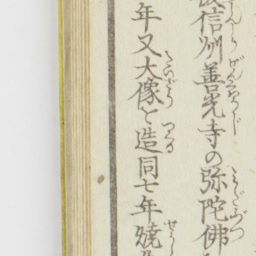 信州善光寺の弥陀佛
年又大像を造同七年燒